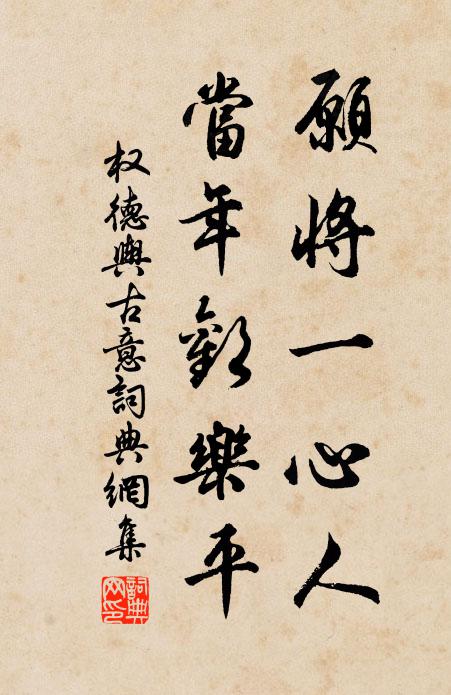 願將一心人
當年歡樂平
权德輿古意詞典網集
詞典
网印